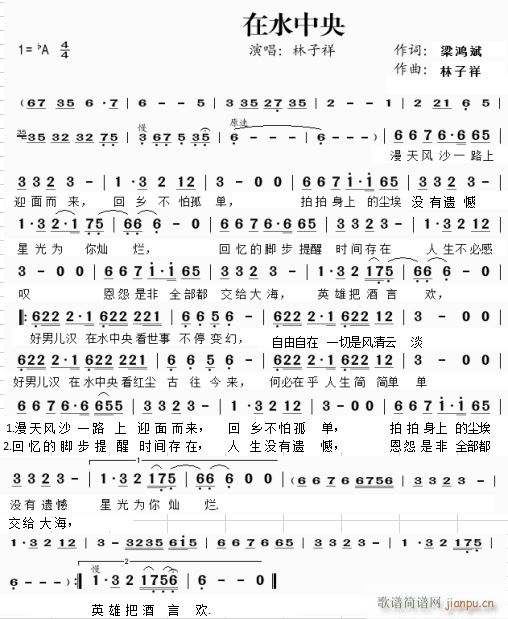 在水中央
1=ᵇA 4/4 演唱：林子祥 作词：梁鸿斌
作曲：林子祥
(67 35 6·7 | 6 - - 5 | 3 35 27 35 | 2 - - 1 | 2 21 6 5 |
慢 原速
35 32 32 75 | 3 67 5 35 | 6 - - - | 6 - - - ) | 66 76·6 65 |
漫天风沙一路上
332 3 - | 1·3 2 12 | 3 - 0 0 | 667 i·i 65 | 332 3 - |
迎面而来， 回乡不怕孤单， 拍拍身上的尘埃 没有遗憾
1·32·1 175 | 66 6 - 0 | 6676·6 65 | 332 3 - | 1·3 2 12 |
星光为你灿烂， 回忆的脚步提醒 时间存在 人生不必感
3 - 0 0 | 667 i·i 65 | 332 3 - | 1·32 175 | 66 6 - 0 |
叹 恩怨是非全部都 交给大海， 英雄把酒言欢，
‖: 622 2·1 622 2·1 | 622 2·1 2 12 | 3 - 0 0 | 622 2·1 622 2·1 |
好男儿汉 在水中央看世事不停变幻， 自由自在 一切是风清云淡
622 2·1 622 2·1 | 6 6 5 6 - | 622 2·1 622 2·1 | 622 2·1 2 12 | 3 - 0 0 |
好男儿汉 在水中央看红尘古往今来， 何必在乎人生简简单单
66 76·6 655 | 332 3 - | 1·3 2 12 | 3 - 0 0 | 667 i·i 65 |
1.漫天风沙一路上 迎面而来， 回乡不怕孤单， 拍拍身上的尘埃
2.回忆的脚步提醒 时间存在， 人生没有遗憾， 恩怨是非全部都
332 3 - | 1·32 175 | 66 6 0 0 | (66 76 76 6756 |
没有遗憾 星光为你灿烂.
交给大海，
1·3 2 12 | 3 - 3235 615i | 665 665 65 | 332 3 - | 1·3 2 12 |
慢
6 - - - ) :‖ 1·32 1756 | 6 - - 0 ‖
英雄把酒言欢.
歌谱简谱网 jianpu.cn